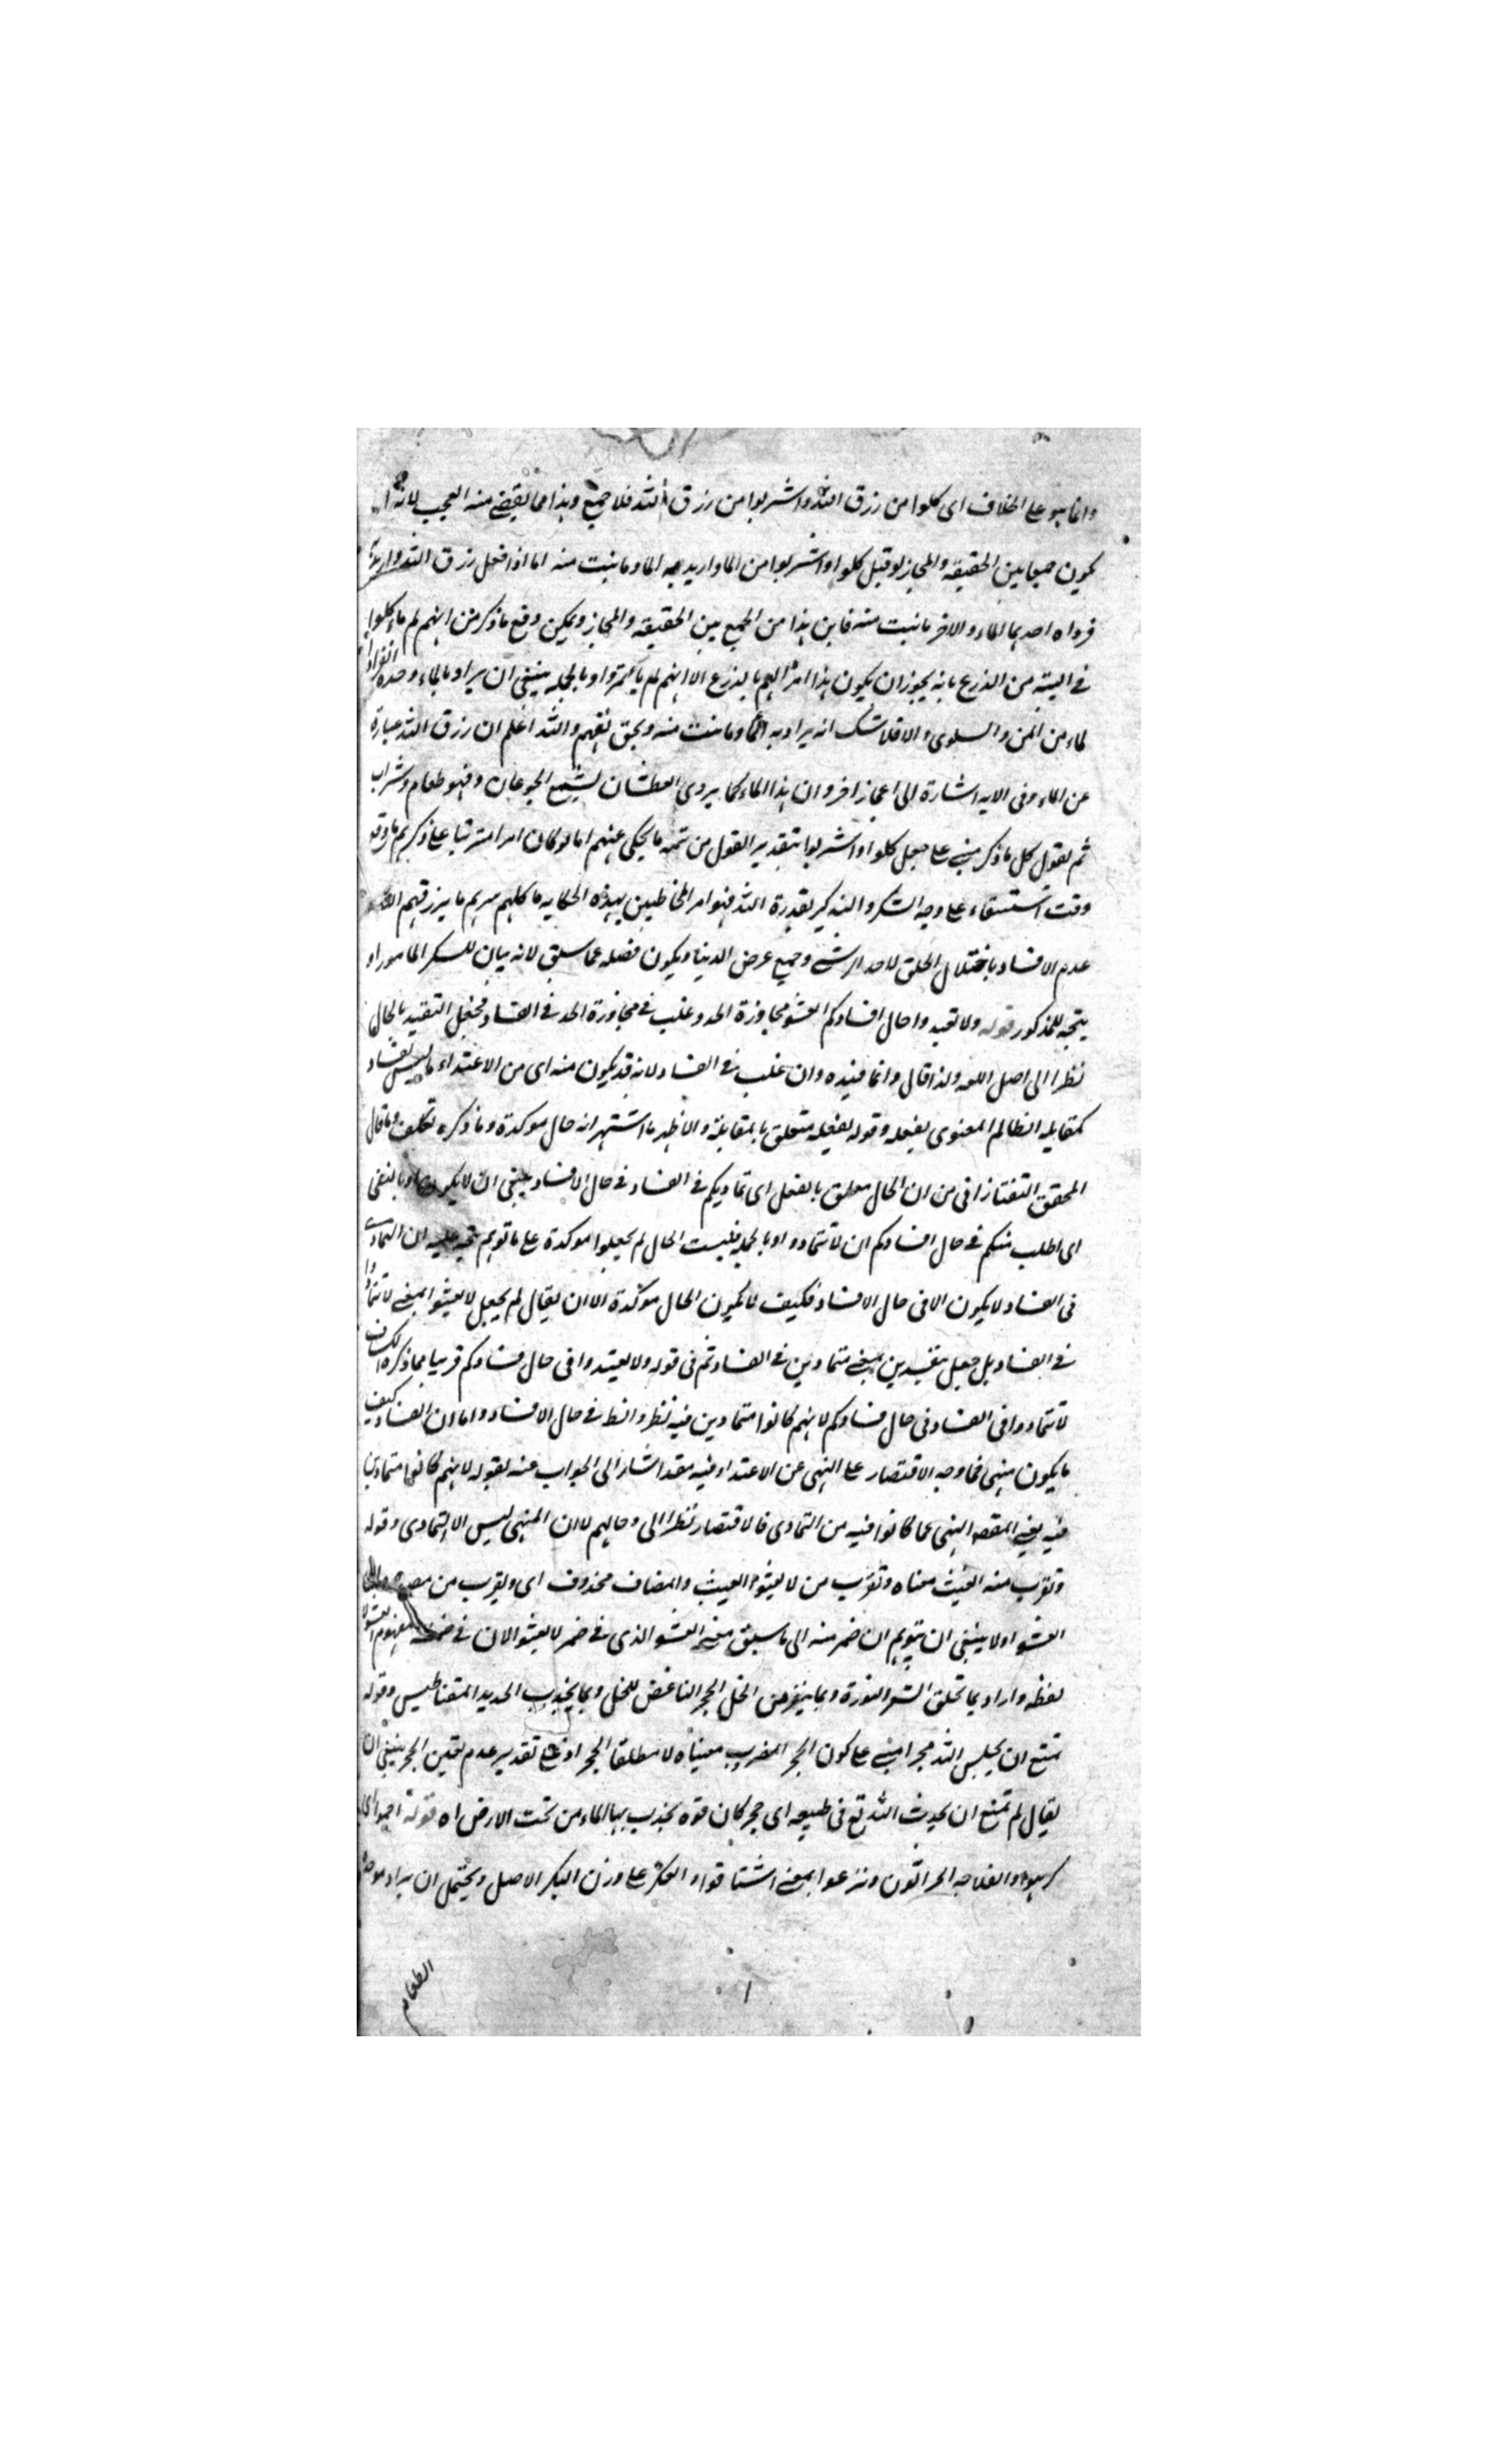 وانما هو على الخلاف اى كلوا من رزق الله واشربوا من رزق الله فلا جمع وهذا مما يقضى منه العجب لانه
يكون جمعا بين الحقيقة والمجاز لو قيل كلوا واشربوا من الماء واريد به الماء وما نبت منه اما اذا فعل رزق الله واريد
فرداه احدهما الماء والاخر ما نبت منه فاين هذا من الجمع بين الحقيقة والمجاز ويمكن دفع ما ذكر من انهم لم ياكلوا
فى التيه من الذرع بانه يجوز ان يكون هذا امرا لهم بالزرع الا انهم لم ياتمروا وبالجملة ينبغى ان يراد بالماء وحده
لماء من المن والسلوى والا فلا شك انه يراد به الماء وما نبت منه ويحق والله اعلم ان رزق الله عبارة
عن الماء وفى الاية اشارة الى اعجاز اخر وان هذا الماء كما يروى العطشان يشبع الجوعان فهو طعام وشراب
ثم نقول كل ما ذكر مبنى على جعل كلوا واشربوا بتقدير القول من تتمة ما يحكى عنهم اما لو كان امرا مترتبا على ذكرهم ما وقع
وقت استسقاء على وجه الشكر والتذكير بقدرة الله فهو امر المخاطبين بهذه الحكاية ما يرزقهم الله
عدم الافساد باختلال الخلق وجمع عرض الدنيا ويكون فصله عما سبق لانه بيان للشكر المامور او
يتجه للمذكور قوله ولا تعتدوا حال افسادكم العثو مجاوزة الحد وغلب فى مجاوزة الحد فى الفساد فجعل التقييد بالحال
نظرا الى اصل اللغة ولذا قال وانما قيده وان غلب فى الفساد لانه قد يكون منه اى من الاعتداء ما ليس بفساد
كمقابلة الظالم المعتدى بفعله وقوله بفعله متعلق بالمقابلة والاظهر ما اشتهر انه حال موكدة وما ذكره تكلف وما قال
المحقق التفتازانى من ان الحال متعلق بالفعل اى تماديكم فى الفساد فى حال الافساد ينبغى ان لا يكون
اى اطلب منكم فى حال افسادكم ان لا تتمادوا وبالجملة فليست الحال لم يجعلوا موكدة على ما توهم يتجه عليه ان التمادى
فى الفساد لا يكون الا فى حال الافساد فكيف لا يكون الحال موكدة الا ان يقال لم يجعل لا تعثوا بمعنى لا تتمادوا
فى الفساد بل جعل مفسدين بمعنى متمادين فى الفساد ثم فى قوله ولا تعتدوا فى حال فسادكم قريبا مما ذكره
لا تتمادوا فى الفساد فى حال فسادكم لانهم كانوا متمادين فيه نظر والنظر فى حال الافساد واما ان الفساد كيف
ما يكون منهى فما وجه الاقتصار على النهى عن الاعتداء فيه فقد اشار الى الجواب عنه بقوله لانهم كانوا متمادين
فيه يعنى المقصد النهى عما كانوا فيه من التمادى فالاقتصار نظرا الى حالهم لا ان المنهى ليس الا التمادى وقوله
وتقرب منه العيث معناه وتقرب من لا تعثوا العيث والمضاف محذوف اى ويقرب من
العثو ولا ينبغى ان يتوهم ان ضمير منه الى ما سبق معنى العثو الذى فى ضمن لا تعثوا لان فى ضمنه مفهوم
لفظه واراد بما تحلق الشعر النورة وبما ينفر من الخل الحجر الباغض للخل وبما يجذب الحديد المقناطيس وقوله
تمتنع ان يحبس الله حجرا مبنى على كون الحجر المضروب معينا لا مطلقا الحجر اذ على تقدير عدم تعين الحجر ينبغى ان
يقال لم تمنع ان يحدث الله تع فى طبيعة اى حجر كان قوة يجذب بها الماء من تحت الارض اه قوله اجموا اى
كرهوا والفلاحة الحراثون ونزعوا بمعنى اشتاقوا والعكر على وزن البكر الاصل ويحتمل ان يراد
الطعام